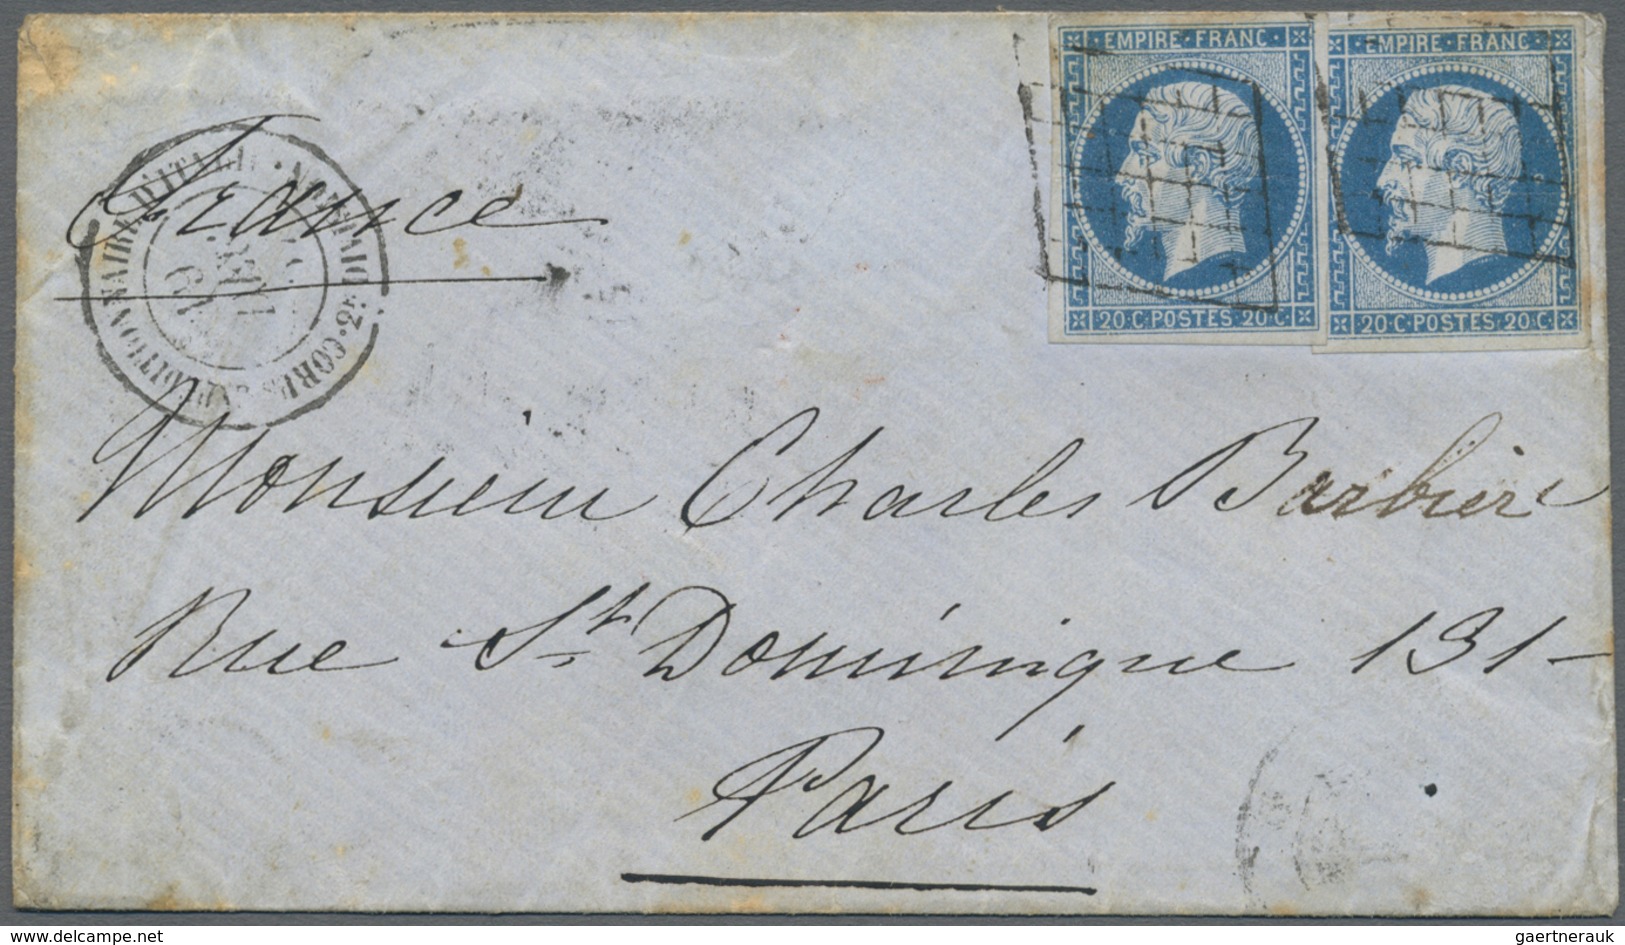 EMPIRE · FRANC · EMPIRE · FRANC ·
France
20 · C · POSTES · 20 · C 20 · C · POSTES · 20 · C
CORPS EXPEDITIONNAIRE D'ITALIE
Monsieur Charles Barbier
Rue St Dominique 131 -
Paris
www.delcampe.net
gaertnerauk